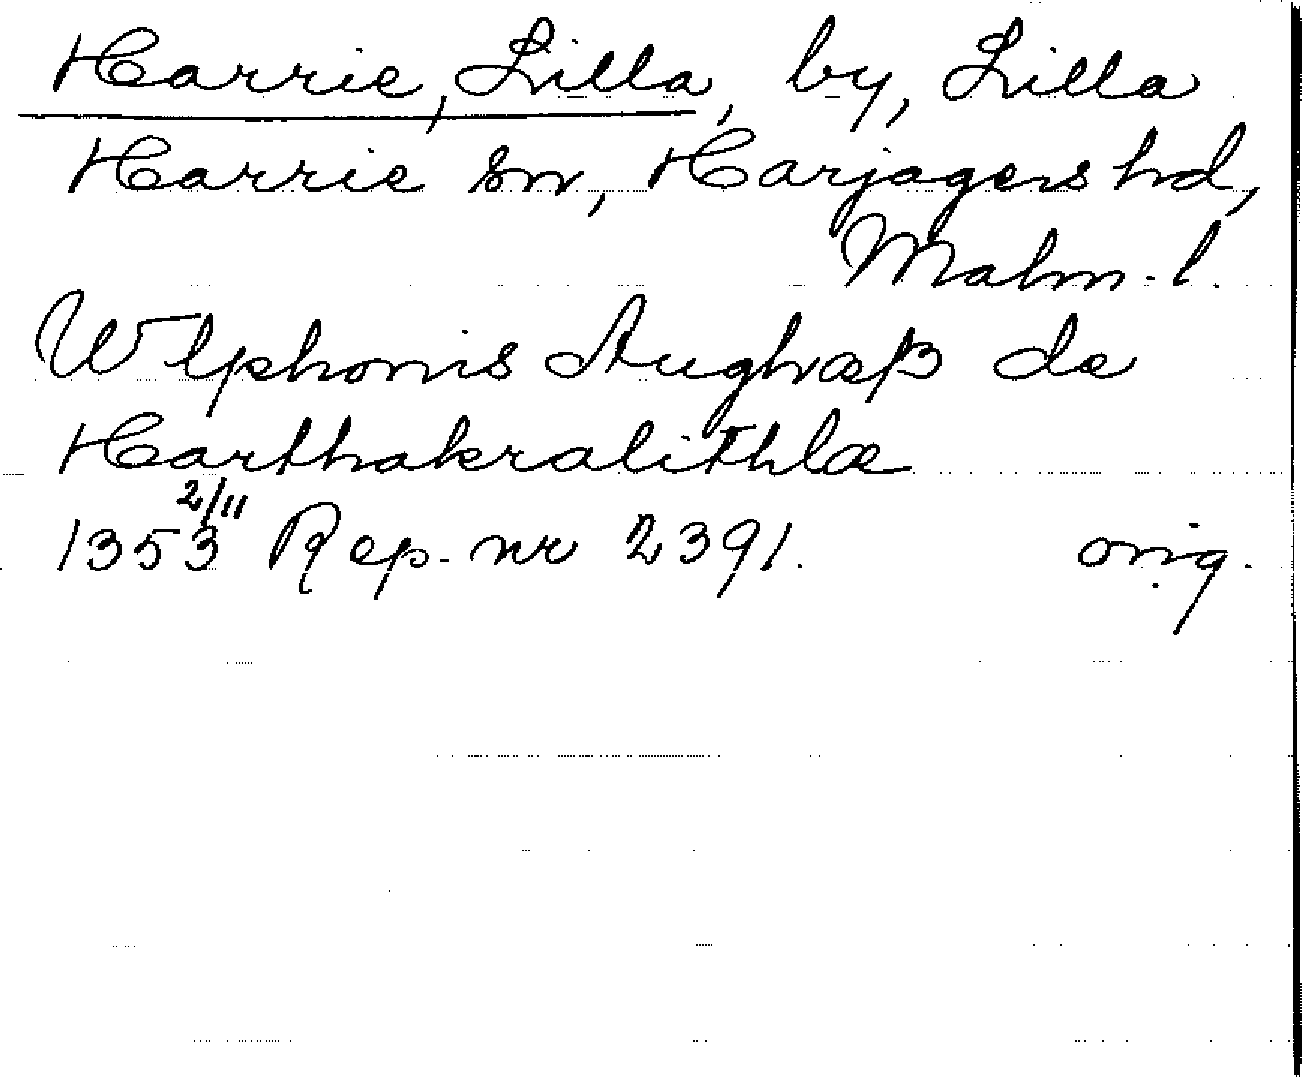 Harrie, Lilla, by, Lilla
Harrie sn, Harjagers hd,
Malm. l.
Wlphonis Aughvæß de
Harthakralithlæ
1353 2/11 Rep. nr 2391. orig.